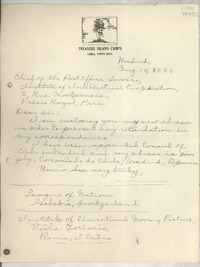 TREASURE ISLAND CAMPS
Madrid,
Aug. 14, 1933
Chief of the Post Office Service,
Institute of Intellectual Cooperation,
2, Rue Montpensier,
Palais Royal, Paris
Dear Sir:
I am enclosing you my new adress
in order to prevent any retardation in
my correspondence.
I have been appointed Consul of
Chile in Madrid and my adress is sim
ply: Consulado de Chile, Madrid,
Yours very truly,
League of Nations
Geneva, Switzerland
Institute of Educational Moving Picture,
Villa Torlonia,
Roma, Italia